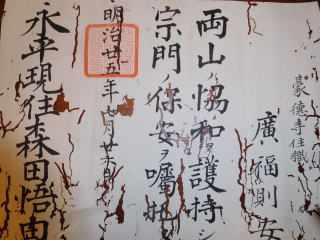 豪德寺住職
廣福則安
両山ノ恊和ヲ護持シ
宗門ノ保安ヲ囑託
明治廿五年七月廿六日
永平現住森田悟由